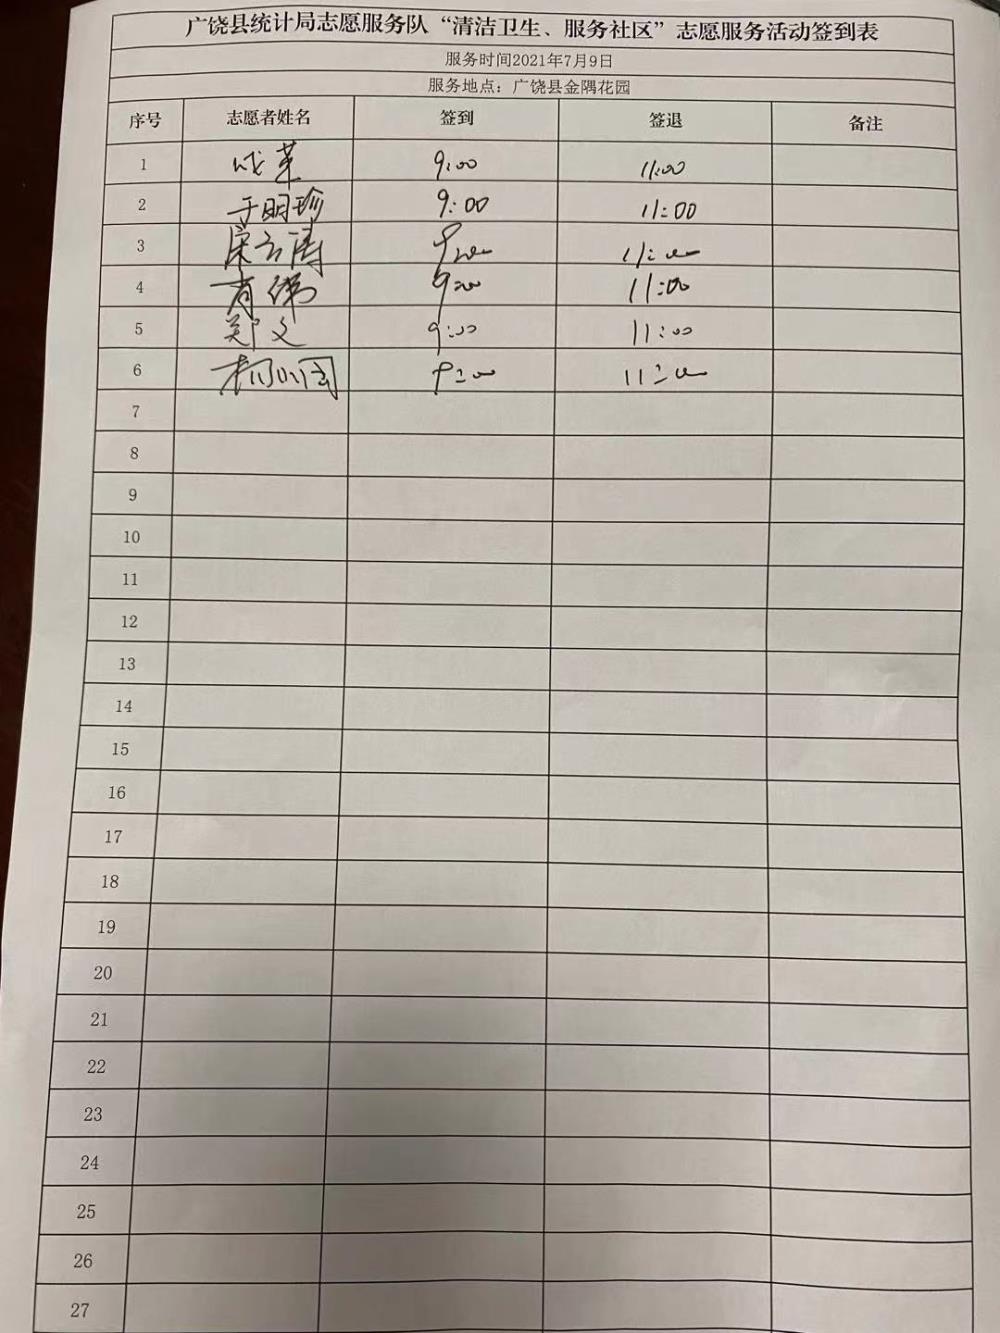 广饶县统计局志愿服务队“清洁卫生、服务社区”志愿服务活动签到表
服务时间2021年7月9日
服务地点：广饶县金隅花园
序号 志愿者姓名 签到 签退 备注
1 9:00 11:00
2 于明珍 9:00 11:00
3 宋云涛 9:00 11:00
4 肖伟 9:00 11:00
5 郑文 9:00 11:00
6 9:00 11:00
7
8
9
10
11
12
13
14
15
16
17
18
19
20
21
22
23
24
25
26
27